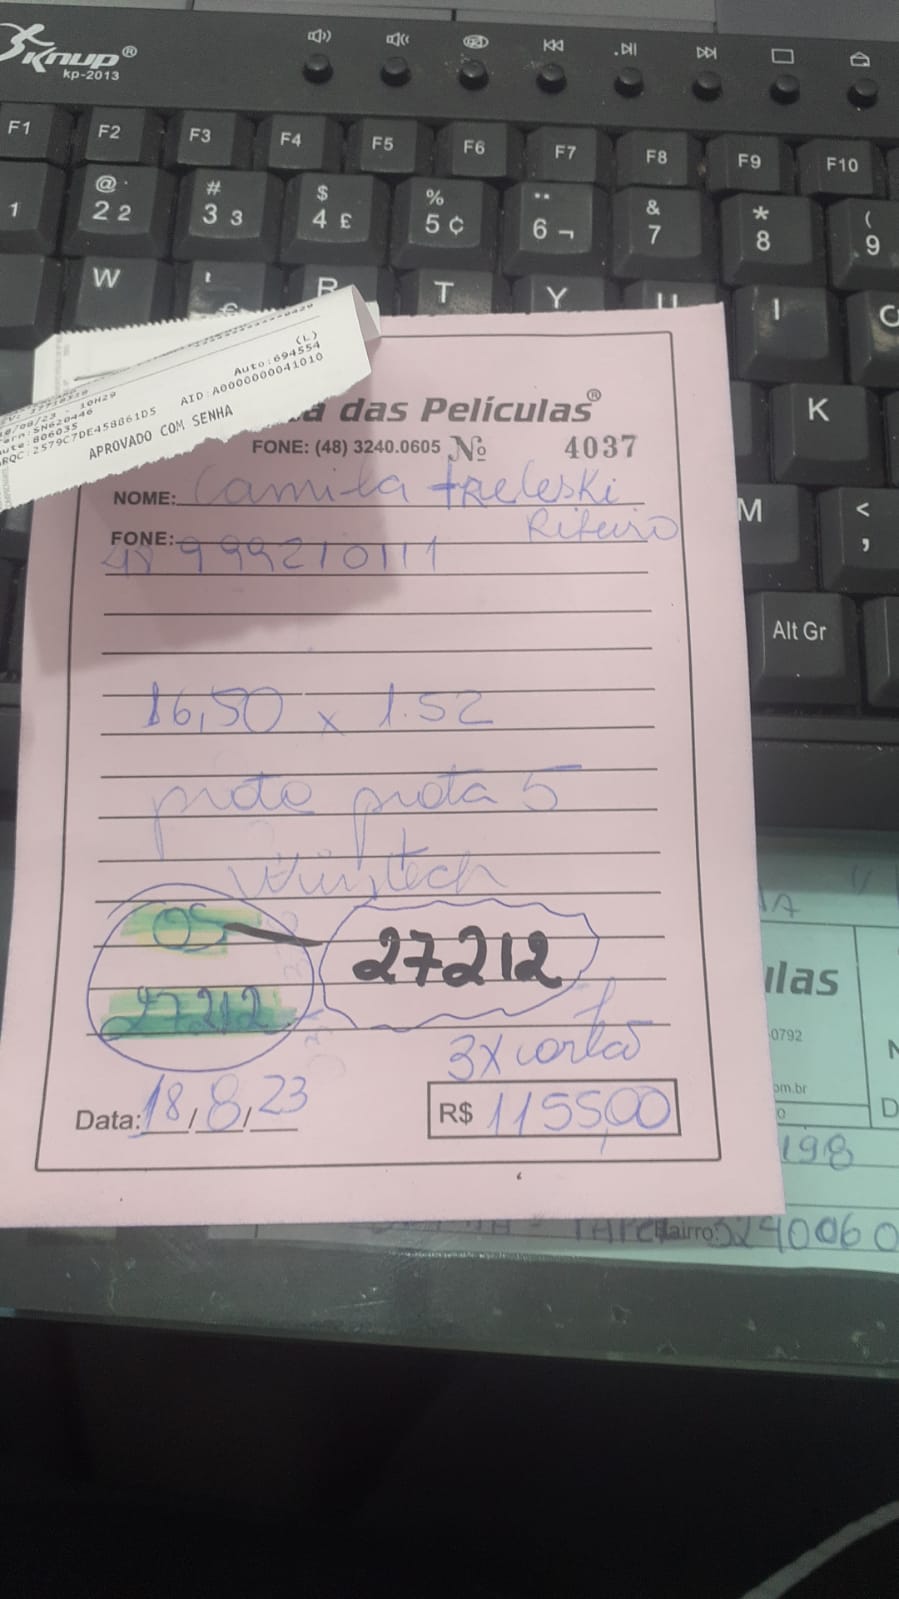 Knup®
kp-2013
F1 F2 F3 F4 F5 F6 F7 F8 F9 F10
1 @ 2 2 # 3 3 $ 4 £ % 5 ¢ ¨ 6 ¬ & 7 * 8 ( 9
W R T Y U I
K
M < ,
Alt Gr
(L)
Auto:694554
18/08/23 - 10H29
Term:SN620446 AID:A0000000041010
Aute:806035
ARQC:2579C7DE458861D5
APROVADO COM SENHA
das Películas®
FONE: (48) 3240.0605 Nº 4037
NOME: Camila Treleski
Ribeiro
FONE:
48 999210111
16,50 x 1.52
preto prata 5
Wintech
OS 27212
27212
3X cartão
Data: 18/8/23 R$ 1155,00
ulas
0792
om.br
198
Bairro: 3240060